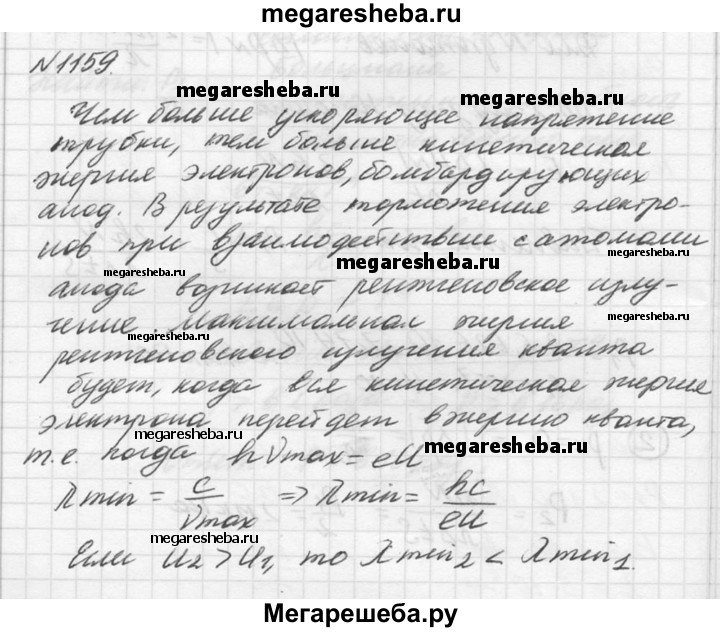 megaresheba.ru
N1159.
megaresheba.ru megaresheba.ru
Чем больше ускоряющее напряжение
трубки, тем больше кинетическая
энергия электронов, бомбардирующих
анод. В результате торможения электро-
нов при взаимодействии с атомами
megaresheba.ru megaresheba.ru megaresheba.ru
анода возникает рентгеновское излу-
чение. Максимальная энергия
megaresheba.ru megaresheba.ru
рентгеновского излучения кванта
будет, когда вся кинетическая энергия
электрона перейдет в энергию кванта,
megaresheba.ru
т.е. когда hνmax = eU
megaresheba.ru
λmin = c/νmax => λmin = hc/eU
megaresheba.ru megaresheba.ru
Если U2 > U1, то λmin2 < λmin1.
Мегарешеба.ру